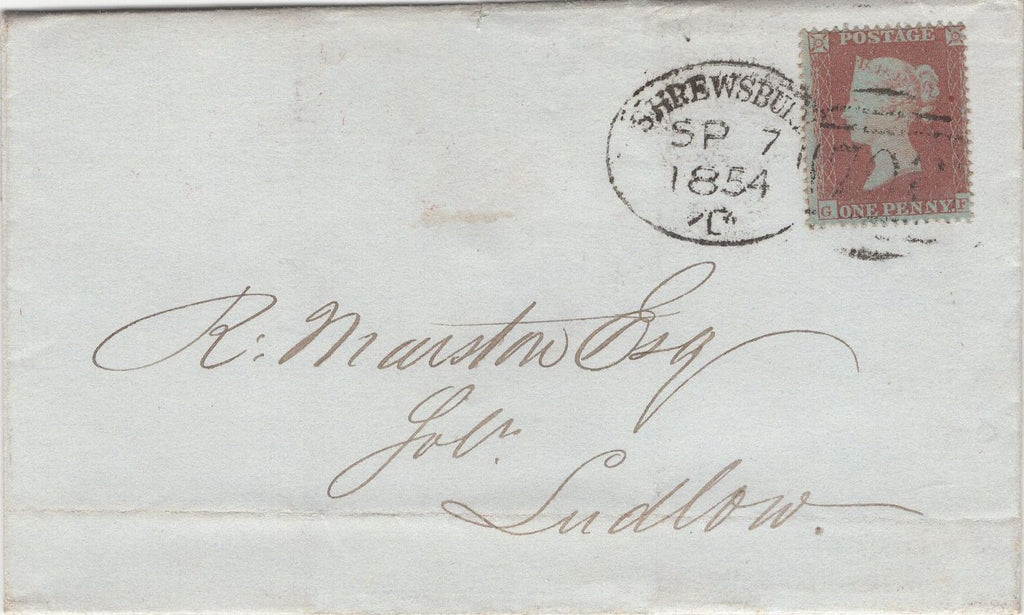 POSTAGE
SHREWSBURY
SP 7
1854
G ONE PENNY F
R: Marston Esq
Solr.
Ludlow.